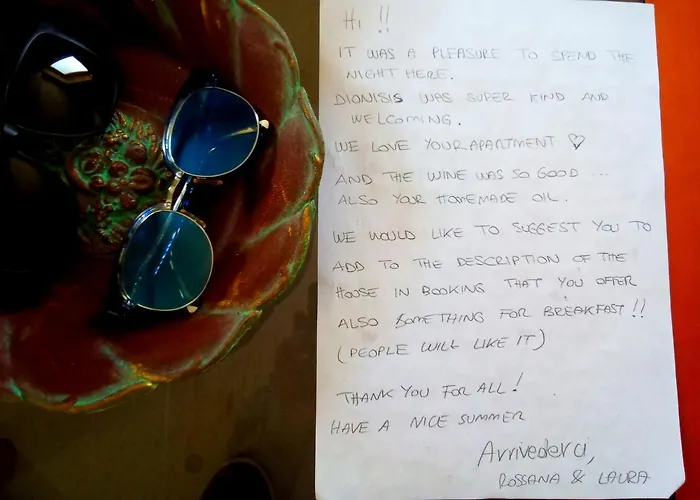 HI !!
IT WAS A PLEASURE TO SPEND THE
NIGHT HERE.
DIONISIS WAS SUPER KIND AND
WELCOMING.
WE LOVE YOUR APARTMENT ♡
AND THE WINE WAS SO GOOD ...
ALSO YOUR HOMEMADE OIL.
WE WOULD LIKE TO SUGGEST YOU TO
ADD TO THE DESCRIPTION OF THE
HOUSE IN BOOKING THAT YOU OFFER
ALSO SOMETHING FOR BREAKFAST!!
(PEOPLE WILL LIKE IT)
THANK YOU FOR ALL!
HAVE A NICE SUMMER
Arrivederci,
ROSSANA & LAURA